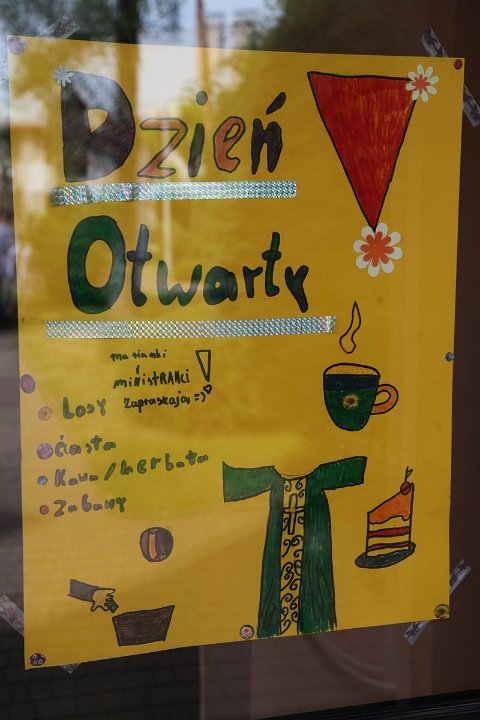 Dzień
Otwarty
marianki
i
miniSTRANCI
zapraszają =)
!
Losy
Ciasta
Kawa/herbata
Zabawy